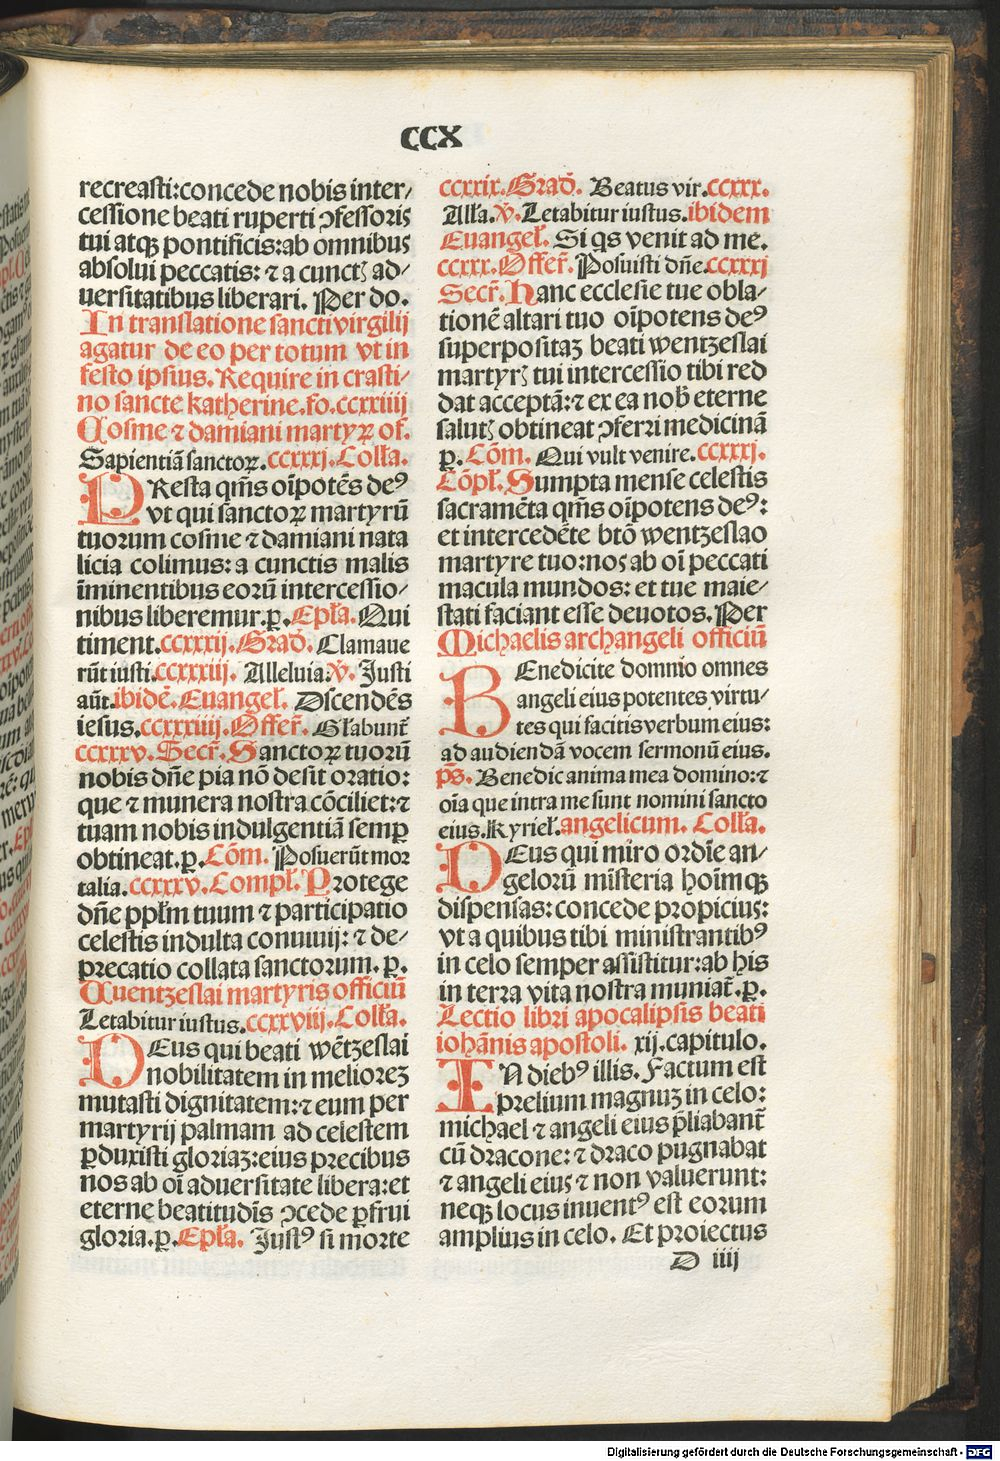 CCX
recreasti:concede nobis inter/
cessione beati ruperti ꝯfessoris
tui atqꝫ pontificis:ab omnibus
absolui peccatis: ⁊ a cunctꝭ ad/
uersitatibus liberari. Per do.
In translatione sancti virgilij
agatur de eo per totum vt in
festo ipsius. Require in crasti/
no sancte katherine. fo. ccxxiiij
Cosme ⁊ damiani martyꝝ of.
Sapientiā sanctoꝝ. ccxxxj. Colła.
PResta qm̄s oīpotēs deꝰ
vt qui sanctoꝝ martyrū
tuorum cosme ⁊ damiani nata
licia colimus: a cunctis malis
īminentibus eorū intercessio/
nibus liberemur. ꝑ. Epła. Qui
timent. ccxxxij. Grad̄. Clamaue
rūt iusti. ccxxxiij. Alleluia: v̄. Justi
aūt. ibidē. Euangeł. Dscendēs
iesus. ccxxxiiij. Offer̄. Głabunt̄
ccxxxv. Secr̄. Sanctoꝝ tuorū
nobis dn̄e pia nō desit oratio:
que ⁊ munera nostra cōciliet: ⁊
tuam nobis indulgentiā semꝑ
obtineat. ꝑ. Cōm. Posuerūt mor
talia. ccxxxv. Compł. Protege
dn̄e ppłm tuum ⁊ participatio
celestis indulta conuiuij: ⁊ de/
precatio collata sanctorum. ꝑ.
Wentzeslai martyris officiū
Letabitur iustus. ccxxviij. Colła.
DEus qui beati wētzeslai
nobilitatem in meliorez
mutasti dignitatem: ⁊ eum per
martyrij palmam ad celestem
ꝑduxisti gloriaz: eius precibus
nos ab oī aduersitate libera: et
eterne beatitudīs ꝯcede ꝑfrui
gloria. ꝑ. Epła. Justꝰ si morte
ccxxix. Grad̄. Beatus vir. ccxxx.
Ałła. v̄. Letabitur iustus. ibidem
Euangeł. Si qs venit ad me.
ccxxx. Offer̄. Posuisti dn̄e. ccxxxj
Secr̄. Hanc ecclesie tue obla/
tionē altari tuo oīpotens deꝰ
superpositaz beati wentzeslai
martyrꝭ tui intercessio tibi red
dat acceptā: ⁊ ex ea nob̄ eterne
salutꝭ obtineat ꝯferri medicinā
ꝑ. Cōm. Qui vult venire. ccxxxj.
Cōpł. Sumpta mense celestis
sacramēta qm̄s oīpotens deꝰ:
et intercedēte btō wentzeslao
martyre tuo: nos ab oī peccati
macula mundos: et tue maie/
stati faciant esse deuotos. Per
Michaelis archangeli officiū
BEnedicite domnio omnes
angeli eius potentes virtu/
tes qui facitis verbum eius:
ad audiendā vocem sermonū eius.
p̄s. Benedic anima mea domino: ⁊
oīa que intra me sunt nomini sancto
eius. Kyrieł. angelicum. Colła.
DEus qui miro ordīe an/
gelorū misteria hoīmqꝫ
dispensas: concede propicius:
vt a quibus tibi ministrantibꝰ
in celo semper assistitur: ab his
in terra vita nostra muniat̄. ꝑ.
Lectio libri apocalipsis beati
iohānis apostoli. xij. capitulo.
IN diebꝰ illis. Factum est
prelium magnuz in celo:
michael ⁊ angeli eius p̄liabant̄
cū dracone: ⁊ draco pugnabat
⁊ angeli eius ⁊ non valuerunt:
neqꝫ locus inuentꝰ est eorum
amplius in celo. Et proiectus
D iiij
Digitalisierung gefördert durch die Deutsche Forschungsgemeinschaft - DFG